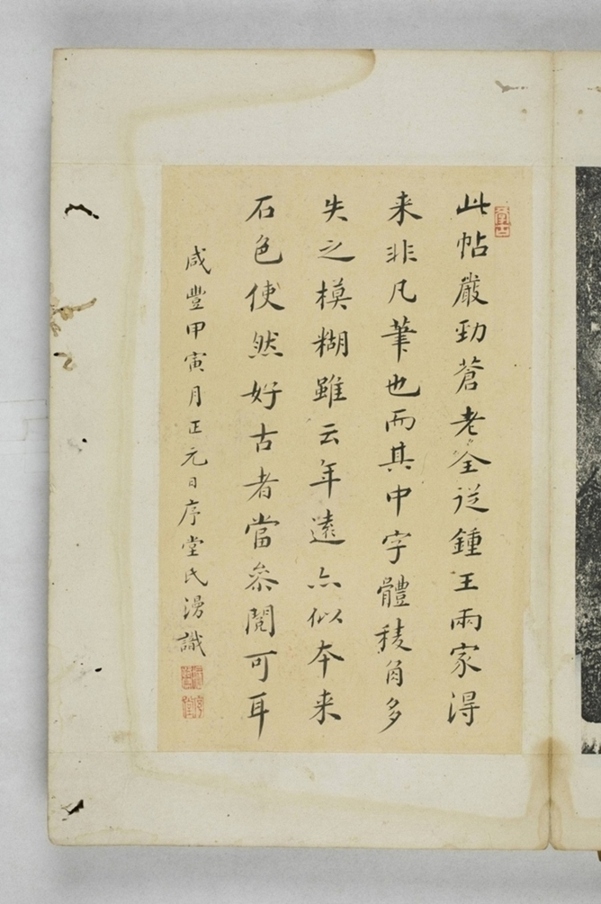 此帖嚴勁蒼老全從鍾王兩家得
来非凡筆也而其中字體稜角多
失之模糊雖云年遠亦似本来
石色使然好古者當叅閱可耳
咸豐甲寅月正元日序堂氏漫識